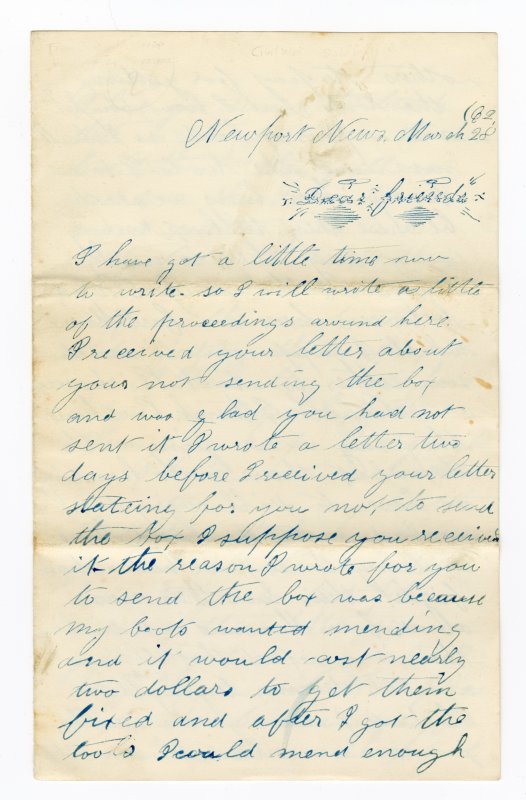 Newport News, March 28 /62
Dear friends
I have got a little time now
to write. so I will write a little
of the proceedings around here.
I received your letter about
your not sending the box
and was glad you had not
sent it I wrote a letter two
days before I received your letter
stateing for you not to send
the box I suppose you received
it the reason I wrote for you
to send the box was because
my boots wanted mending
and it would cost nearly
two dollars to get them
fixed and after I got the
tools I could mend enough